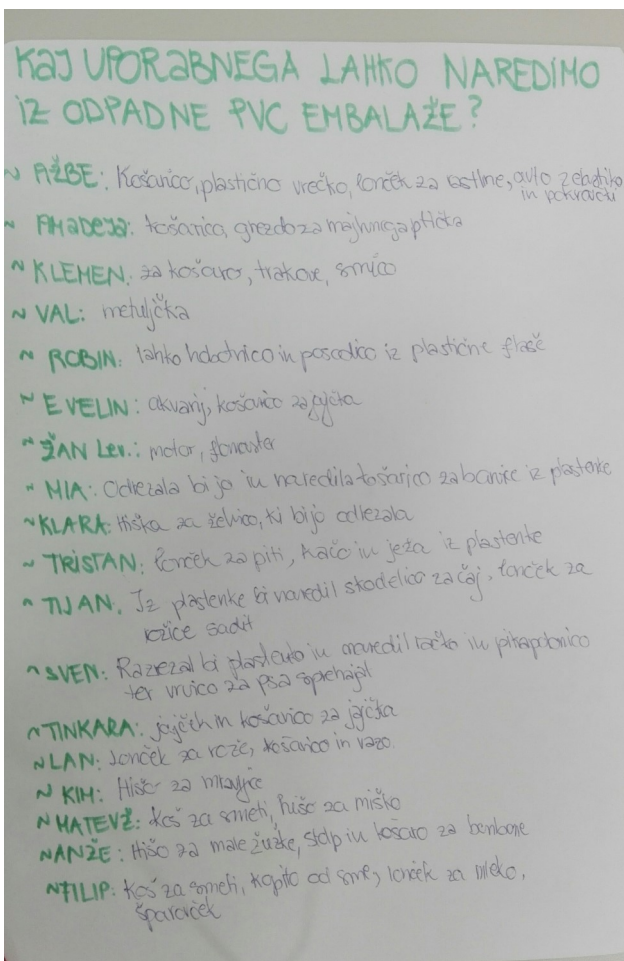 KAJ UPORABNEGA LAHKO NAREDIMO
IZ ODPADNE PVC EMBALAŽE?
~ AŽBE: Košarico, plastično vrečko, lonček za rastline, avto z elastiko
in pokrovčki
~ AMADEJA: košarica, gnezdo za majhnega ptička
~ KLEMEN: za košaro, trakove,
~ VAL: metuljčka
~ ROBIN: lahko hobotnico in posodico iz plastične flaše
~ EVELIN: akvarij, košarico za jajčka
~ ŽAN Lev.: motor, flomaster
~ MIA: Odrezala bi jo in naredila košarico za banane iz plastenke
~ KLARA: Hiška za želvico, ki bi jo odrezala
~ TRISTAN: lonček za piti, kačo in ježa iz plastenke
~ TIJAN: Iz plastenke bi naredil skodelico za čaj, lonček za
rožice sadit
~ SVEN: Razrezal bi plastenko in naredil račko in pikapolonico
ter vrvico za psa sprehajat
~ TINKARA: jajček in košarico za jajčka
~ LAN: Lonček za rože, košarico in vazo.
~ KIM: Hišo za mravljice
~ MATEVŽ: Koš za smeti, hišo za miško
~ ANŽE: Hišo za male žužke, stolp in košaro za bonbone
~ FILIP: Koš za smeti, kopito od srne, lonček za mleko,
šparovček